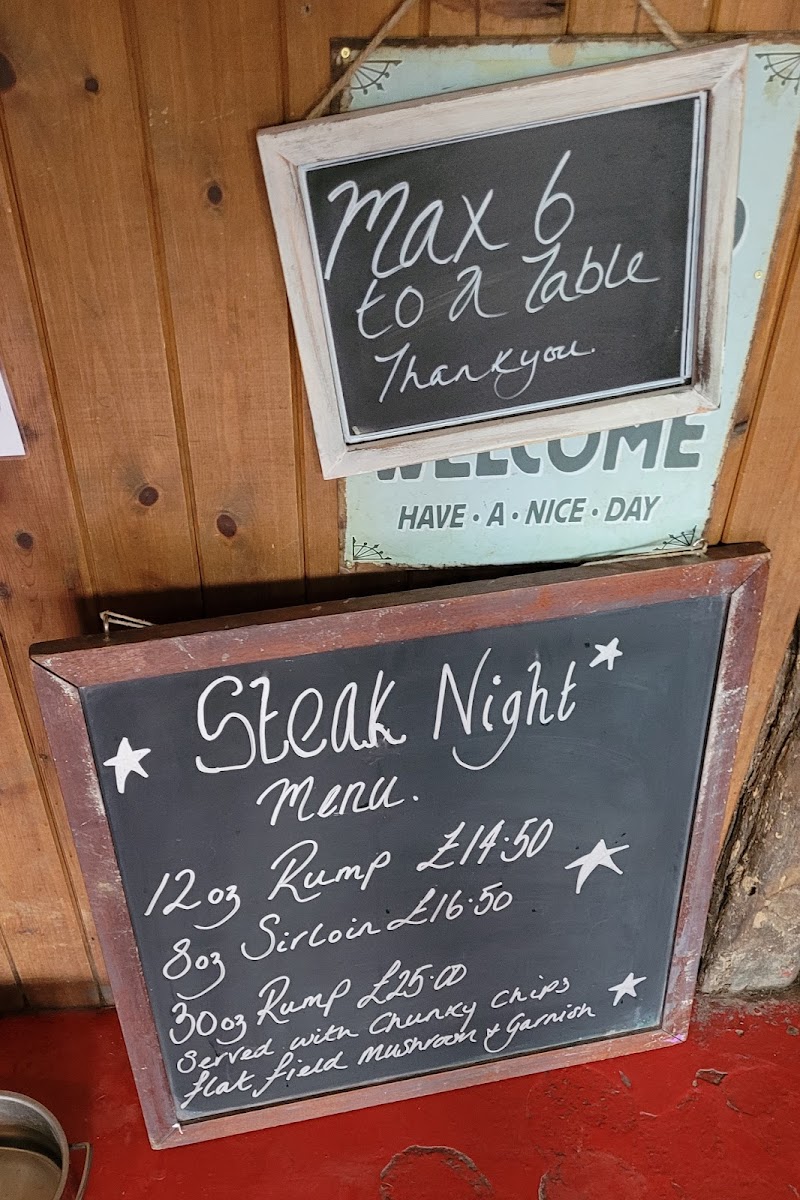 Max 6
to a Table
Thankyou.
WELCOME
HAVE • A • NICE • DAY
Steak Night
Menu.
12oz Rump £14.50
8oz Sirloin £16.50
30oz Rump £25.00
Served with Chunky Chips
flat field Mushroom & Garnish